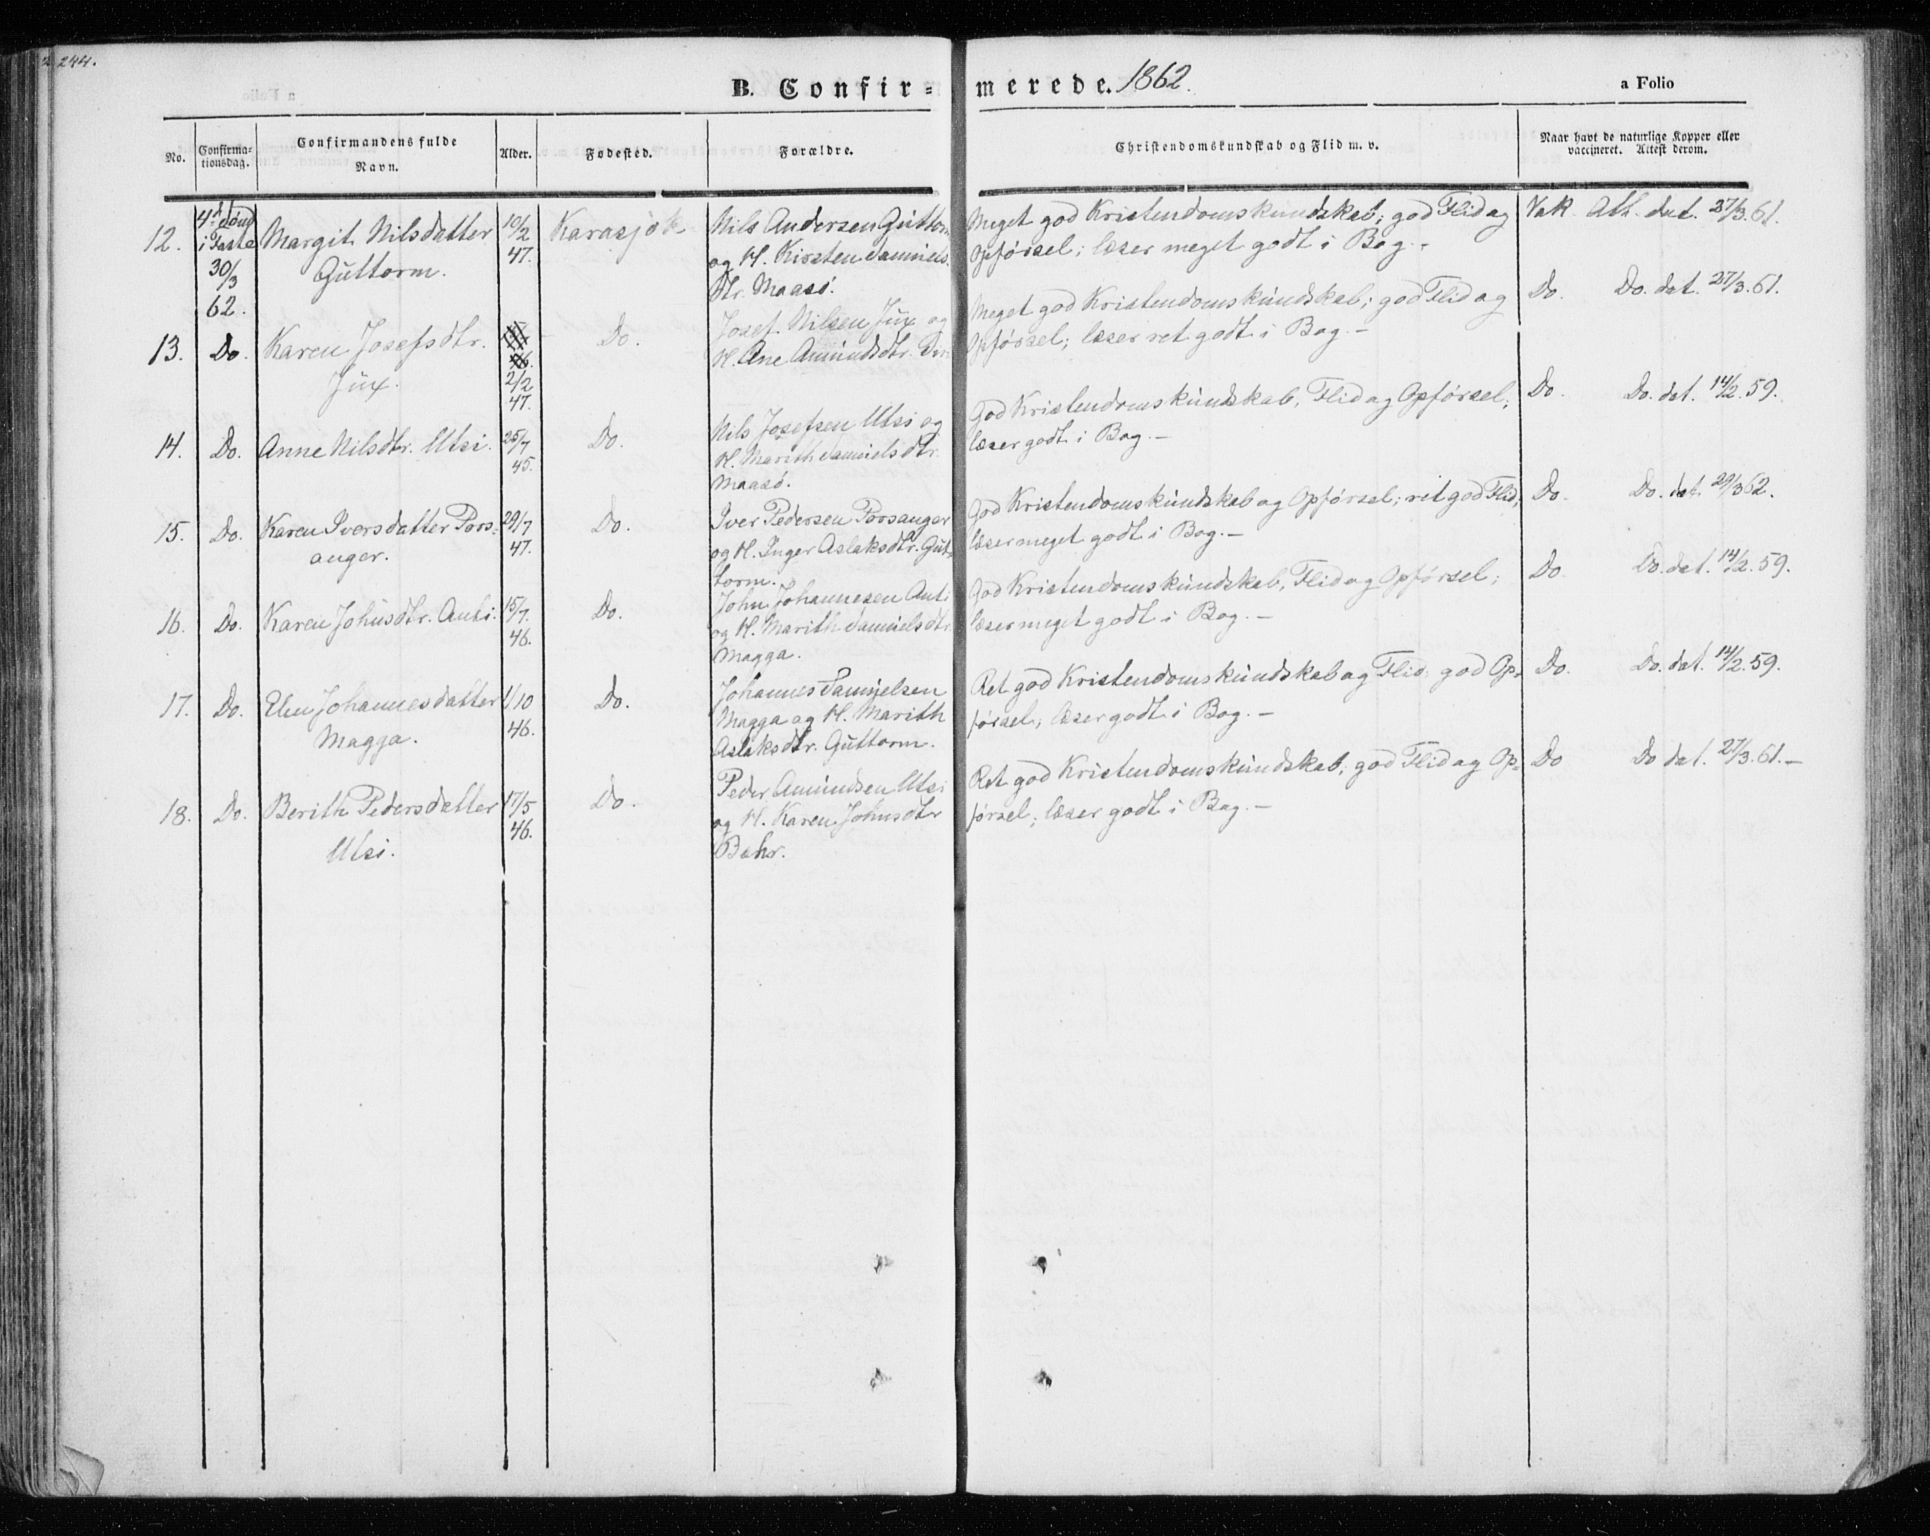 244.
B. Confir=merede. 1862.
a Folio
No.
Confirma-
tionsdag.
Confirmandens fulde
Navn.
Alder.
Fødested.
Forældre.
Christendomskundskab og Flid m. v.
Naar havt de naturlige Kopper eller
vaccineret. Attest derom.
12.
4de Sønd
i Faste
30/3
62.
Margit Nilsdatter
Guttorm.
10/2
47.
Karasjok
Nils Andersen Guttorm
og H. Kirsten Samuels
dtr. Maasø.
Meget god Kristendomskundskab; god Flid og
Opførsel; læser meget godt i Bog. -
Vak. Att. dat. 27/3.61.
13.
Do.
Karen Josefsdtr.
Jux.
2/2
47.
Do.
Josef Nilsen Jux og
H. Ane Amundsdtr.
Meget god Kristendomskundskab; god Flid og
Opførsel; læser ret godt i Bog. -
Do. Do. dat. 27/3.61.
14.
Do.
Anne Nilsdtr. Utsi.
25/7
45.
Do.
Nils Josefsen Utsi og
H. Marith Samuelsdtr.
Maasø.
God Kristendomskundskab, Flid og Opførsel;
læser godt i Bog. -
Do. Do. dat. 14/2.59.
15.
Do.
Karen Iversdatter Pors-
anger.
29/7
47.
Do.
Iver Pedersen Porsanger
og H. Inger Aslaksdtr. Gut-
torm.
God Kristendomskundskab og Opførsel; ret god Flid;
læser meget godt i Bog. -
Do. Do. dat. 29/3 62.
16.
Do.
Karen Johnsdtr. Anti.
15/7.
46.
Do.
John Johannesen Anti
og H. Marith Samuelsdtr.
Magga.
God Kristendomskundskab, Flid og Opførsel;
læser meget godt i Bog. -
Do. Do. dat. 14/2.59.
17.
Do.
Elen Johannesdatter
Magga.
1/10
46.
Do.
Johannes Samuelsen
Magga og H. Marith
Aslaksdtr. Guttorm.
Ret god Kristendomskundskab og Flid; god Op-
førsel; læser godt i Bog. -
Do. Do. dat. 14/2.59.
18.
Do.
Berith Pedersdatter
Utsi.
17/5
46.
Do.
Peder Amundsen Utsi
og H. Karen Johnsdtr
Bæhr.
Ret god Kristendomskundskab; god Flid og Op-
førsel; læser godt i Bog. -
Do Do dat. 27/3.61. -